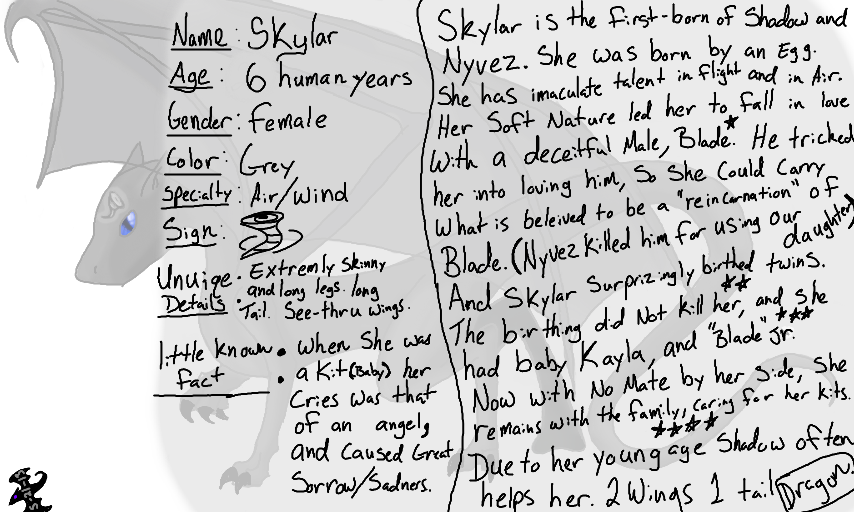 Name: Skylar
Age: 6 human years
Gender: female
Color: Grey
Specialty: Air/Wind
Sign:
Unuiqe Details
• Extremly skinny
and long legs. long
• Tail. See-thru wings.
little known fact
• When She was
• a Kit(Baby) her
Cries was that
of an angel,
and caused Great
Sorrow/Sadners.
Skylar is the first-born of Shadow and
Nyvez. She was born by an Egg.
She has imaculate talent in flight and in Air.
Her Soft Nature led her to fall in love
with a deceitful Male, Blade.* He tricked
her into loving him, so She Could Carry
What is beleived to be a "reincarnation" of
Blade. (Nyvez killed him for using our daughter)
And Skylar Surprizingly birthed twins.
The birthing did Not kill her,** and she
had baby Kayla, and "Blade" Jr.***
Now with No Mate by her side, She
remains with the family, caring for her kits.
****
Due to her young age Shadow often
helps her. 2 Wings 1 tail Dragon